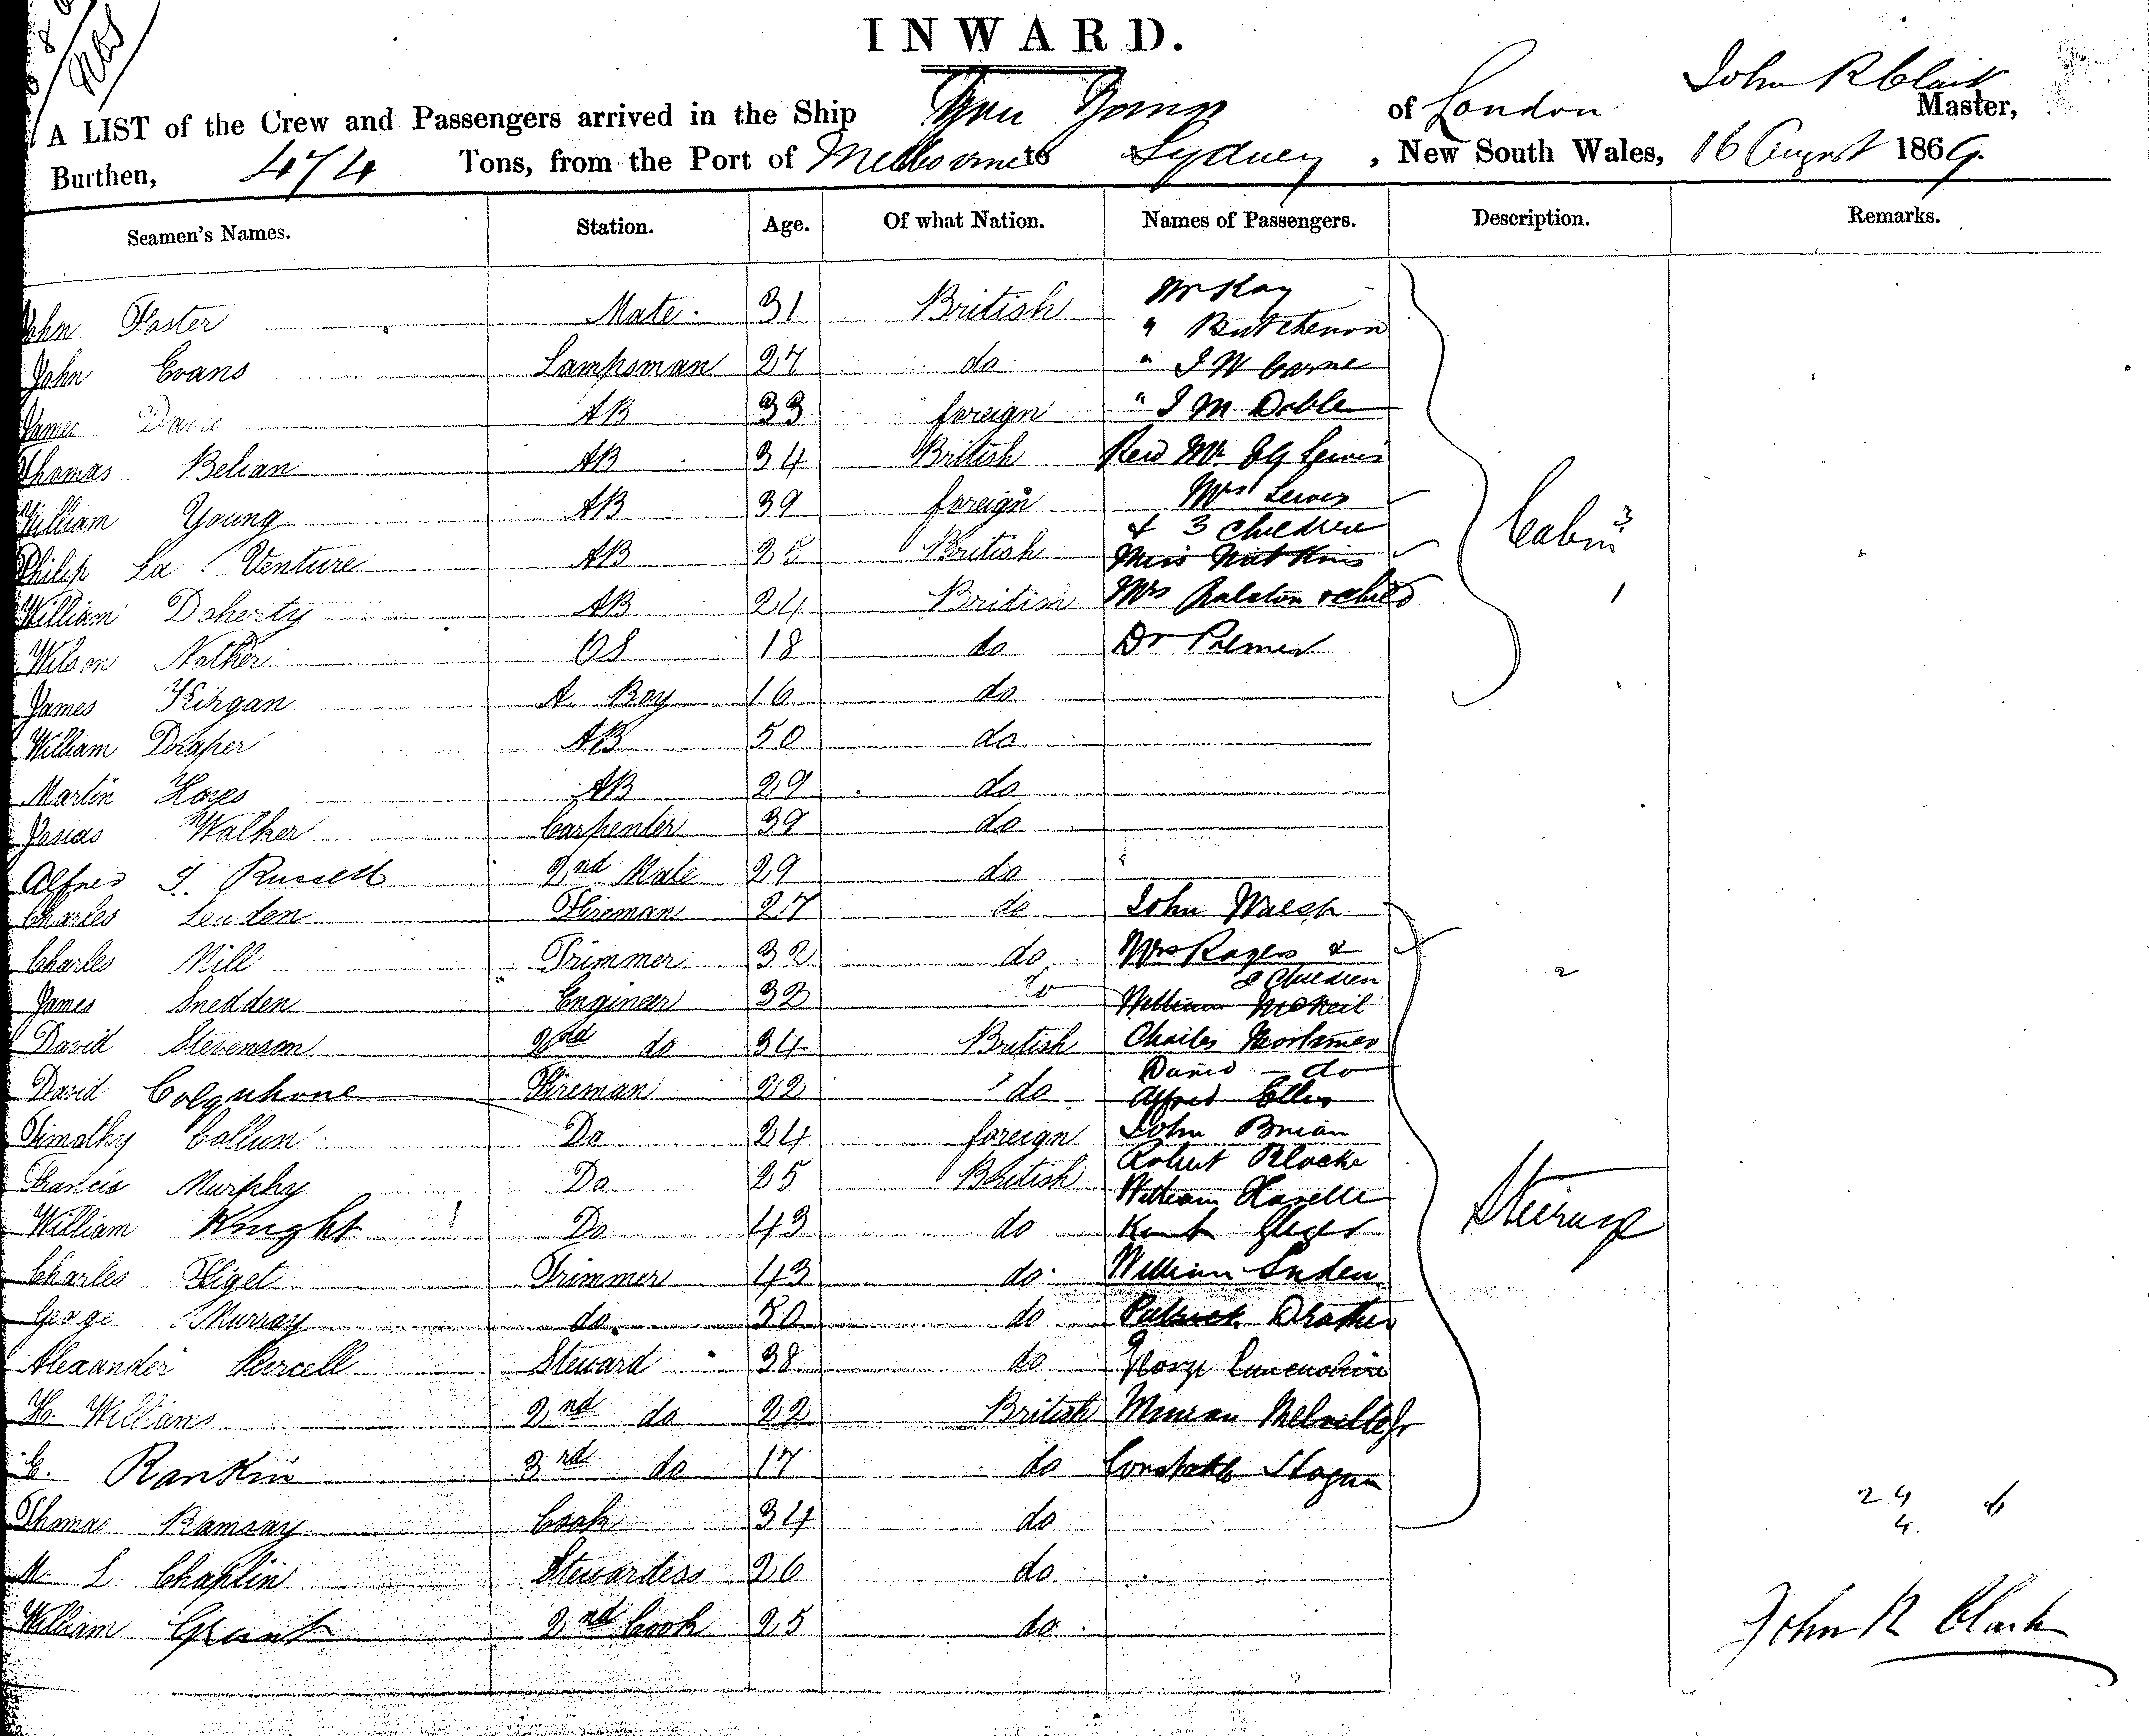 INWARD.
A LIST of the Crew and Passengers arrived in the Ship You Yangs of London John R Clark Master,
Burthen, 474 Tons, from the Port of Melbourne to Sydney, New South Wales, 16 August 1869.
Seamen's Names. Station. Age. Of what Nation. Names of Passengers. Description. Remarks.
John Foster Mate 31 British Mr Kay
" Butchenon
John Evans Lampsman 27 do " J W Carne
James Davie AB 33 foreign " J M Doble
Thomas Belian AB 34 British Rev Mr Lewis
William Young AB 39 foreign Mrs Lewis
& 3 Children
Philip La Venture AB 25 British Miss Watkins
Cabin
William Doherty AB 24 British Mrs Ralston & child
Wilson OS 18 do Dr Palmer
James Kirgan A Boy 16 do
William Draper AB 50 do
Martin Hayes AB 29 do
Josias Walker Carpenter 39 do
Alfred J. Russell 2nd Mate 29 do
Charles Leuden Fireman 27 do John Walsh
Charles Hill Trimmer 32 do Mrs Rogers &
2 Children
James Snedden Engineer 32 do William McNeil
David Stevenson 2nd do 34 British Charles Mortimer
David do
David Colquhone Fireman 22 do Alfred Ellis
Timothy Callun Do 24 foreign John Brian
Francis Murphy Do 25 British Robert Blacke
William Haselle
William Knight Do 43 do
Steerage
Charles Figet Trimmer 43 do William Snden
George Murray do 50 do Patrick
Alexander Purcell Steward 38 do George
H Williams 2nd do 22 British Melville
C. Rankin 3rd do 17 do Constable Hogan
Thomas Ramsay Cook 34 do
24
4
M L Chaplin Stewardess 26 do
William Grant 2nd Cook 25 do
John R Clark